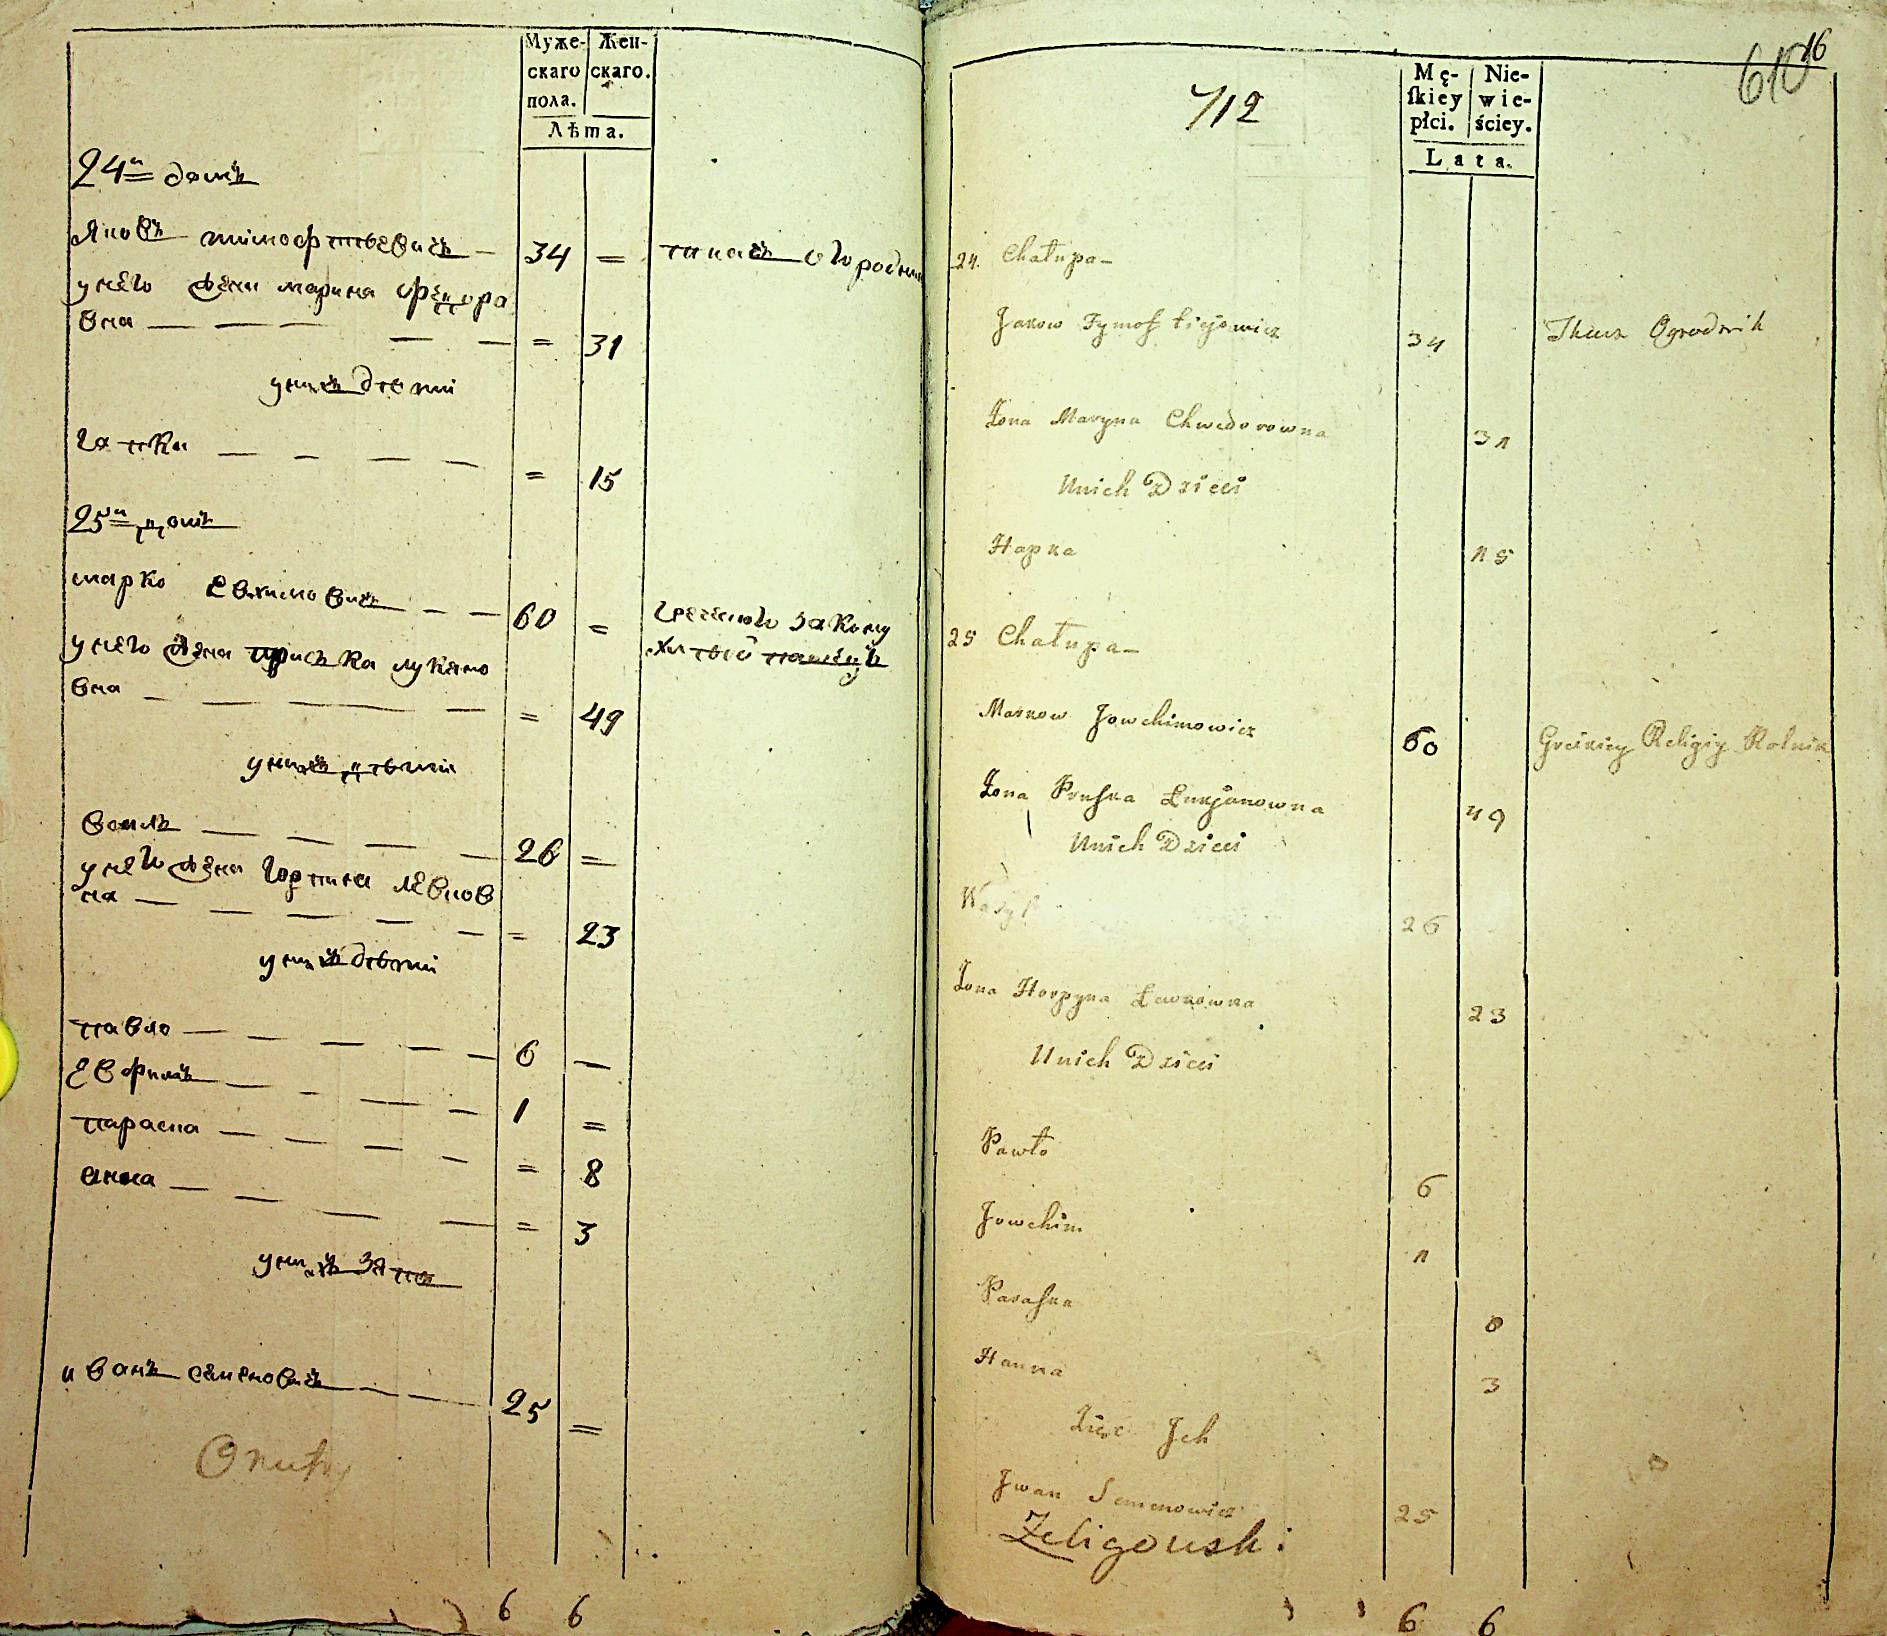 Муже-
скаго
пола.
Жен-
скаго.
Лѣта.
24й домъ
Яковъ тимофтѣевичъ — 34 = ткачъ огородни
унего жена марина федоро
вна — — — = 31
унихъ дѣти
гапка — — — = 15
25й домъ
марко евхимовичъ — — 60 = греческого закону
унего жена приська лукяно
вна — — — = 49
унихъ дѣти
василь — — — 26 =
унего жена горпина левков
на — — — = 23
унихъ дѣти
павло — — — 6 —
— — — 1 =
параска — — — = 8
анна — — — = 3
унихъ зять
иванъ семеновичъ — — 25 =
6 6
712
610
16
Mę-
ſkiey
płci.
Nie-
wie-
ściey.
Lata.
24. Chałupa—
Jakow 34 Tkacz Ogrodnik
Żona Maryna Chwedorowna 31
Unich Dzieci
Hapka 15
25 Chałupa—
Markow Jowchimowicz 60 Greckiey Religiy Rolnik
Żona Pruſka Łukjanowna 49
Unich Dzieci
Wasyl 26
Żona Horpyna Lewkowna 23
Unich Dzieci
Pawło 6
Jowchim 1
Paraſka 8
Hanna 3
Zięć Jch
Jwan Semenowicz 25
Żeligowski
6 6